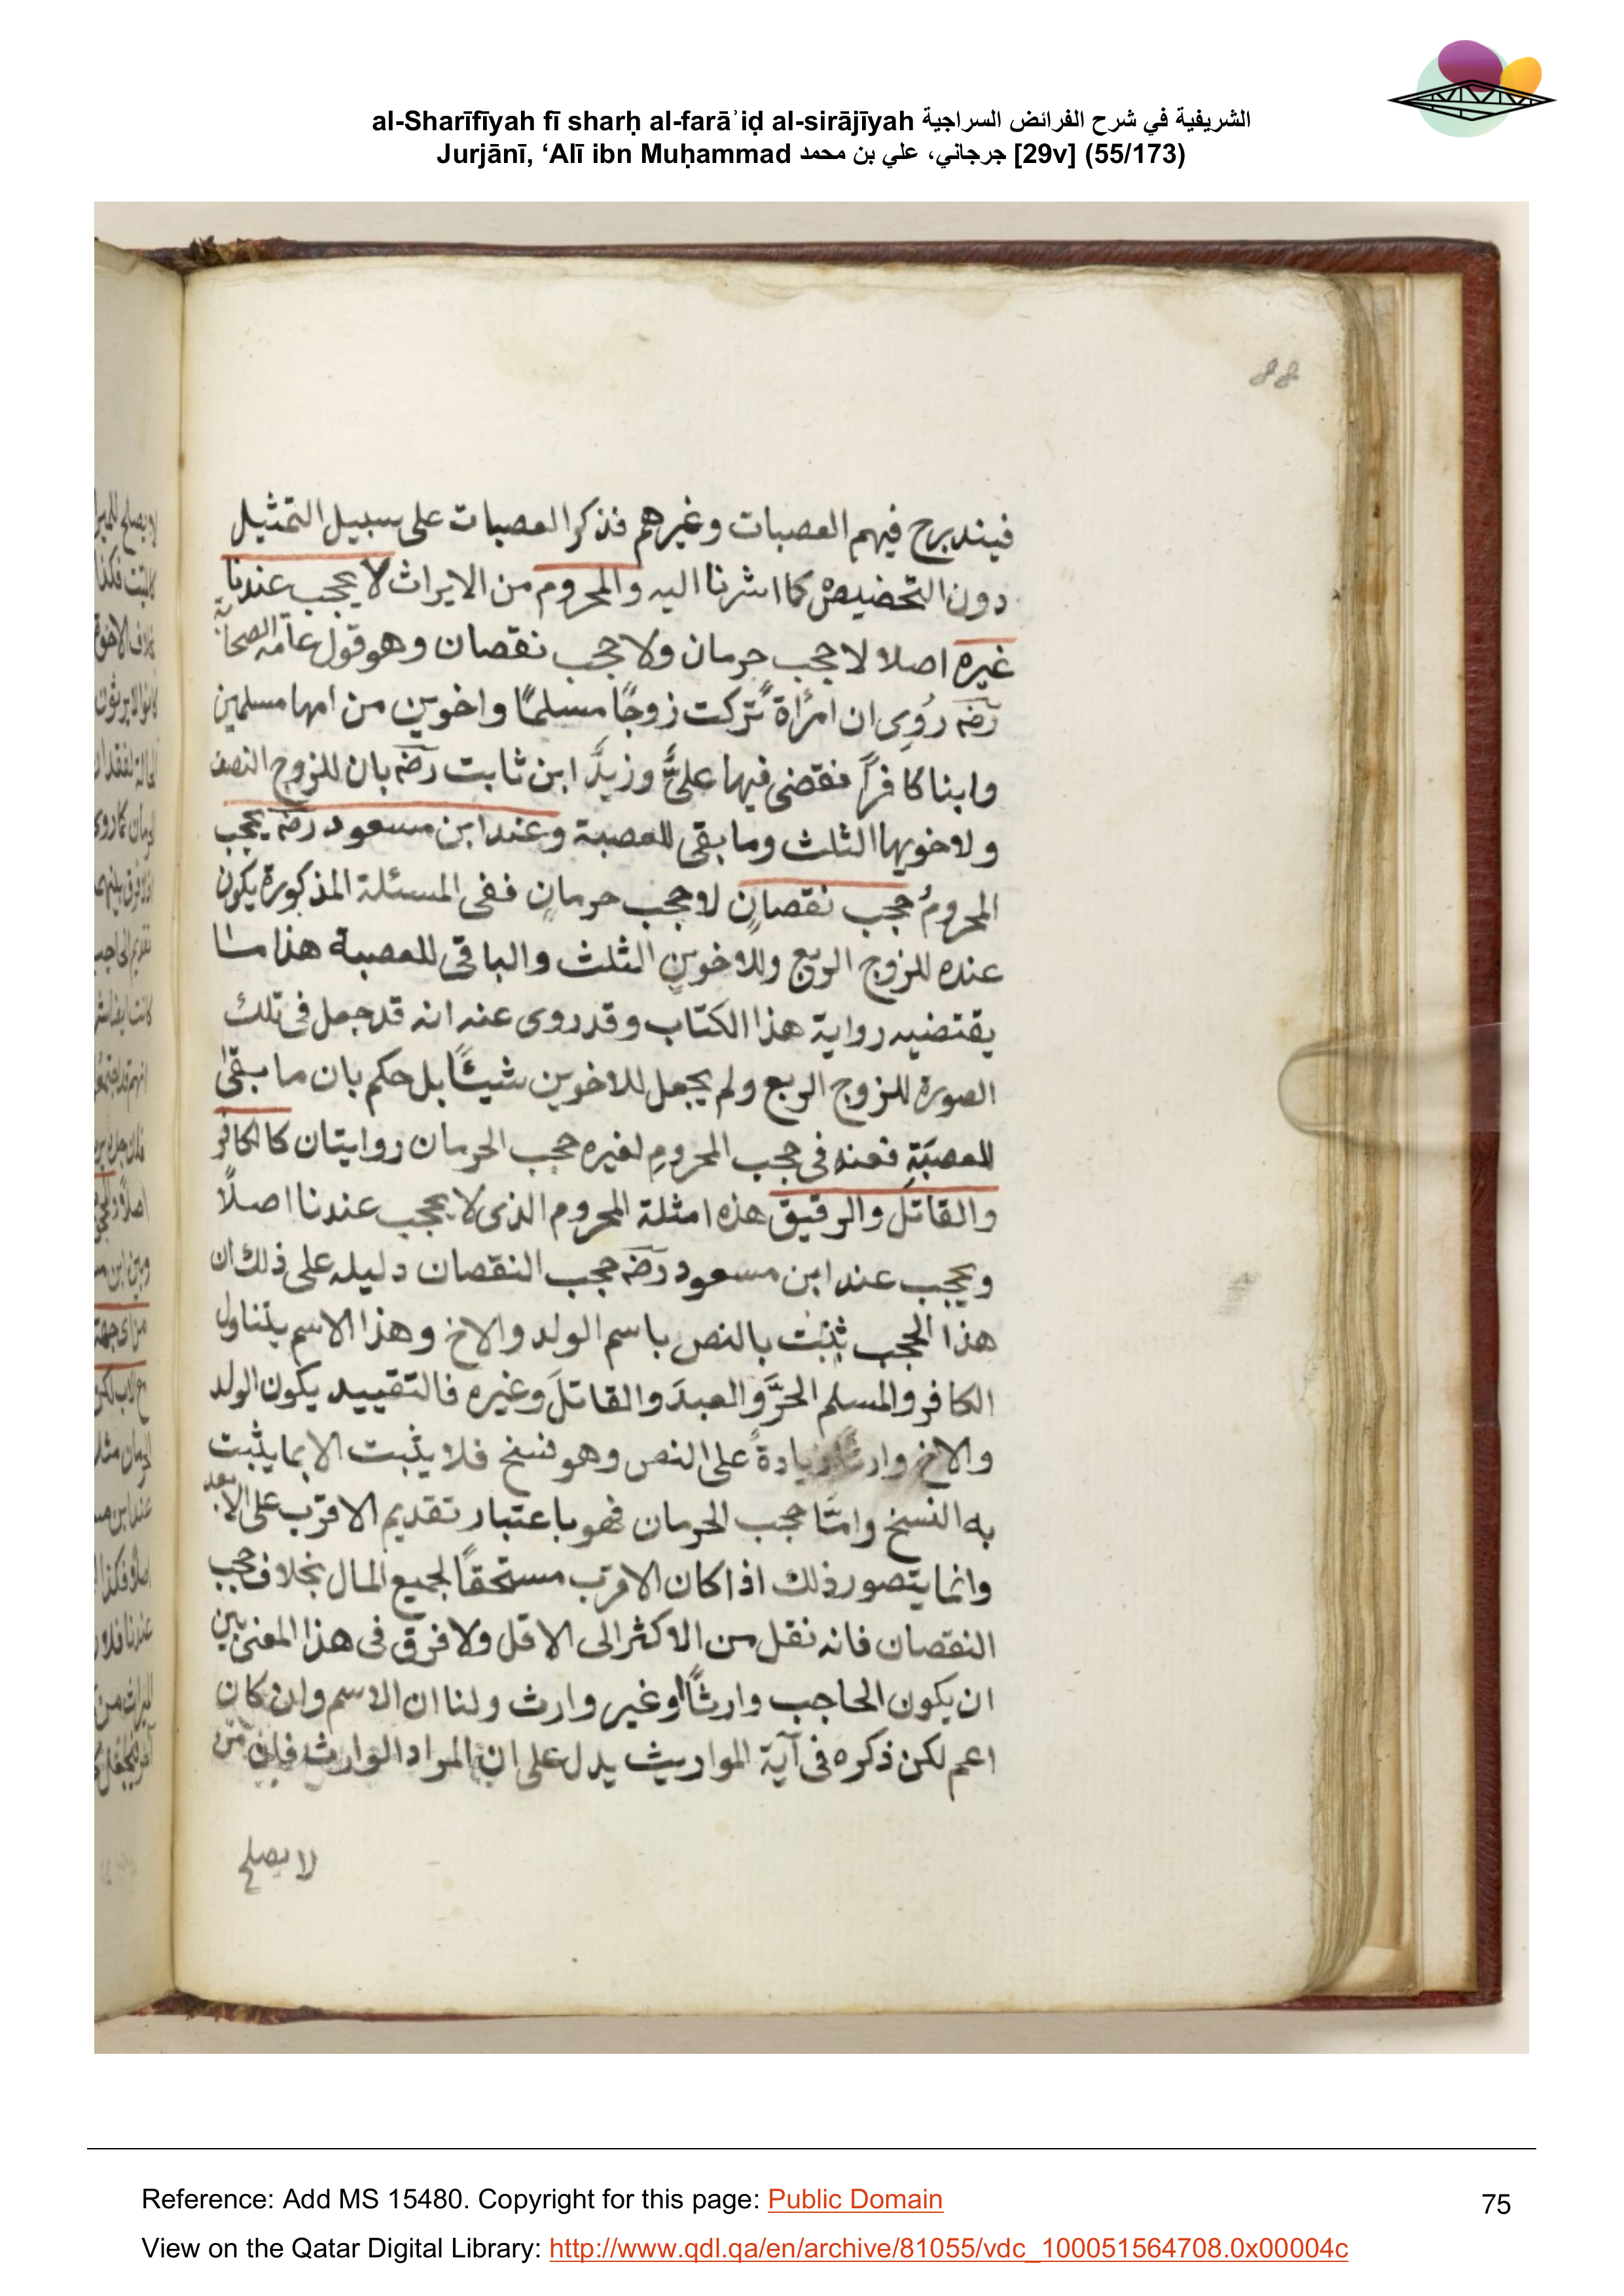 al-Sharīfīyah fī sharḥ al-farāʾiḍ al-sirājīyah الشريفية في شرح الفرائض السراجية
Jurjānī, ‘Alī ibn Muḥammad جرجاني، علي بن محمد [29v] (55/173)
فيندرج فيهم العصبات وغيرهم فذكر العصبات على سبيل التمثيل
دون التخصيص كما اشرنا اليه والمحروم من الايراث لا يحجب عندنا
غيره اصلا لا حجب حرمان ولا حجب نقصان وهو قول عامة الصحابة
رضه رُوِى ان امرأة تركت زوجًا مسلمًا واخوين من امها مسلمين
وابنا كافراً فقضى فيها علىٌّ وزيدٌ ابن ثابت رضه بان للزوج النصف
ولاخويها الثلث وما بقى للعصبة وعند ابن مسعود رضه يحجب
المحرومُ حجب نقصانٍ لا حجب حرمانٍ ففى المسئلة المذكورة يكون
عنده للزوج الربع وللاخوين الثلث والباقى للعصبة هذا ما
يقتضيه رواية هذا الكتاب وقد روى عنه انه قد جعل فى تلك
الصورة للزوج الربع ولم يجعل للاخوين شيئًا بل حكم بان ما بقى
للعصَبَةِ فعنه فى حجب المحرومِ لغيره حجب الحرمان روايتان كالكافر
والقاتل والرقيق هذه امثلة المحروم الذى لا يحجب عندنا اصلاً
ويحجب عند ابن مسعود رضه حجب النقصان دليله على ذلك ان
هذا الحجب ثبت بالنص باسم الولد والاخ وهذا الاسم يتناول
الكافر والمسلم الحرَّ والعبدَ والقاتلَ وغيره فالتقييد يكون الولد
والاخ وارثًا زيادةً على النص وهو نسخ فلا يثبت الا بما يثبت
به النسخ وامّا حجب الحرمان فهو باعتبار تقديم الاقرب على الابعد
وانما يتصور ذلك اذا كان الاقرب مستحقًا لجميع المال بخلاف حجب
النقصان فانه نقل من الاكثر الى الاقل ولا فرق فى هذا المعنى بين
ان يكون الحاجب وارثًا او غير وارث ولنا ان الاسم وان كان
اعم لكن ذكره فى آية المواريث يدل على ان المراد الوارث فان من
لا يصلح
Reference: Add MS 15480. Copyright for this page: Public Domain
75
View on the Qatar Digital Library: http://www.qdl.qa/en/archive/81055/vdc_100051564708.0x00004c